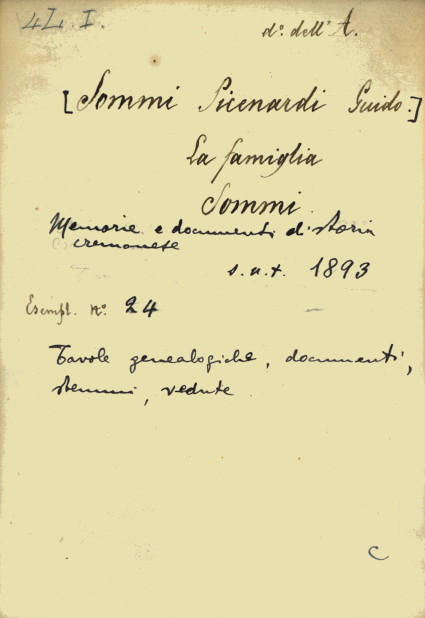 4L. I.
d° dell'A.
[Sommi Picenardi Guido.]
La famiglia
Sommi.
Memorie e documenti di storia
cremonese
s.n.t. 1893
Esempl. n° 24
Tavole genealogiche, documenti,
stemmi, vedute
C